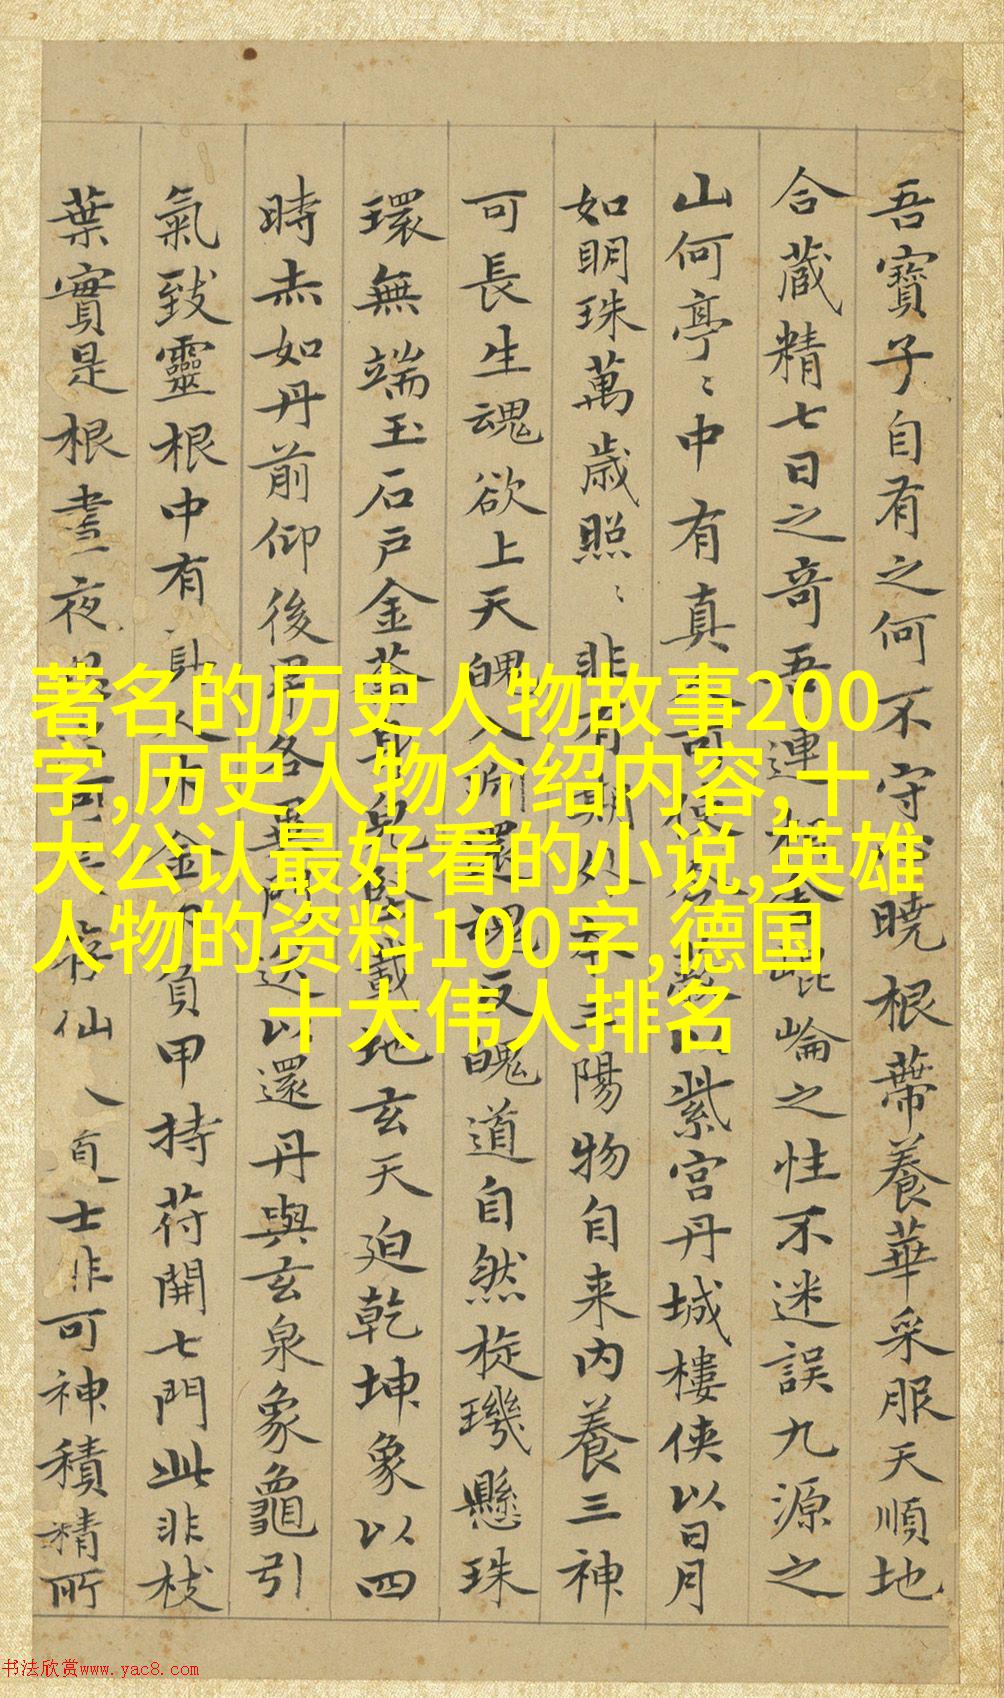 吾寶子自有之何不守曉根蔕養華采服天順地
合蔵精七日之奇吾連崐崘之性不迷誤九源之
山何亭〻中有真紫宮丹城樓俠以日月
如明珠萬歲照〻非有期陽物自来内養三神
可長生魂欲上天魄入渕還魂反魄道自然旋璣懸珠
環無端玉石戸金戴地玄天迫乾坤象以四
時赤如丹前仰後各門送以還丹與玄泉象龜引
氣致靈根中有人金負甲持苻開七門此非枝
葉實是根晝夜仙人士非可神積精所
著名的历史人物故事200
字,历史人物介绍内容,十
大公认最好看的小说,英雄
人物的资料100字,德国
十大伟人排名
书法欣赏www.yac8.com